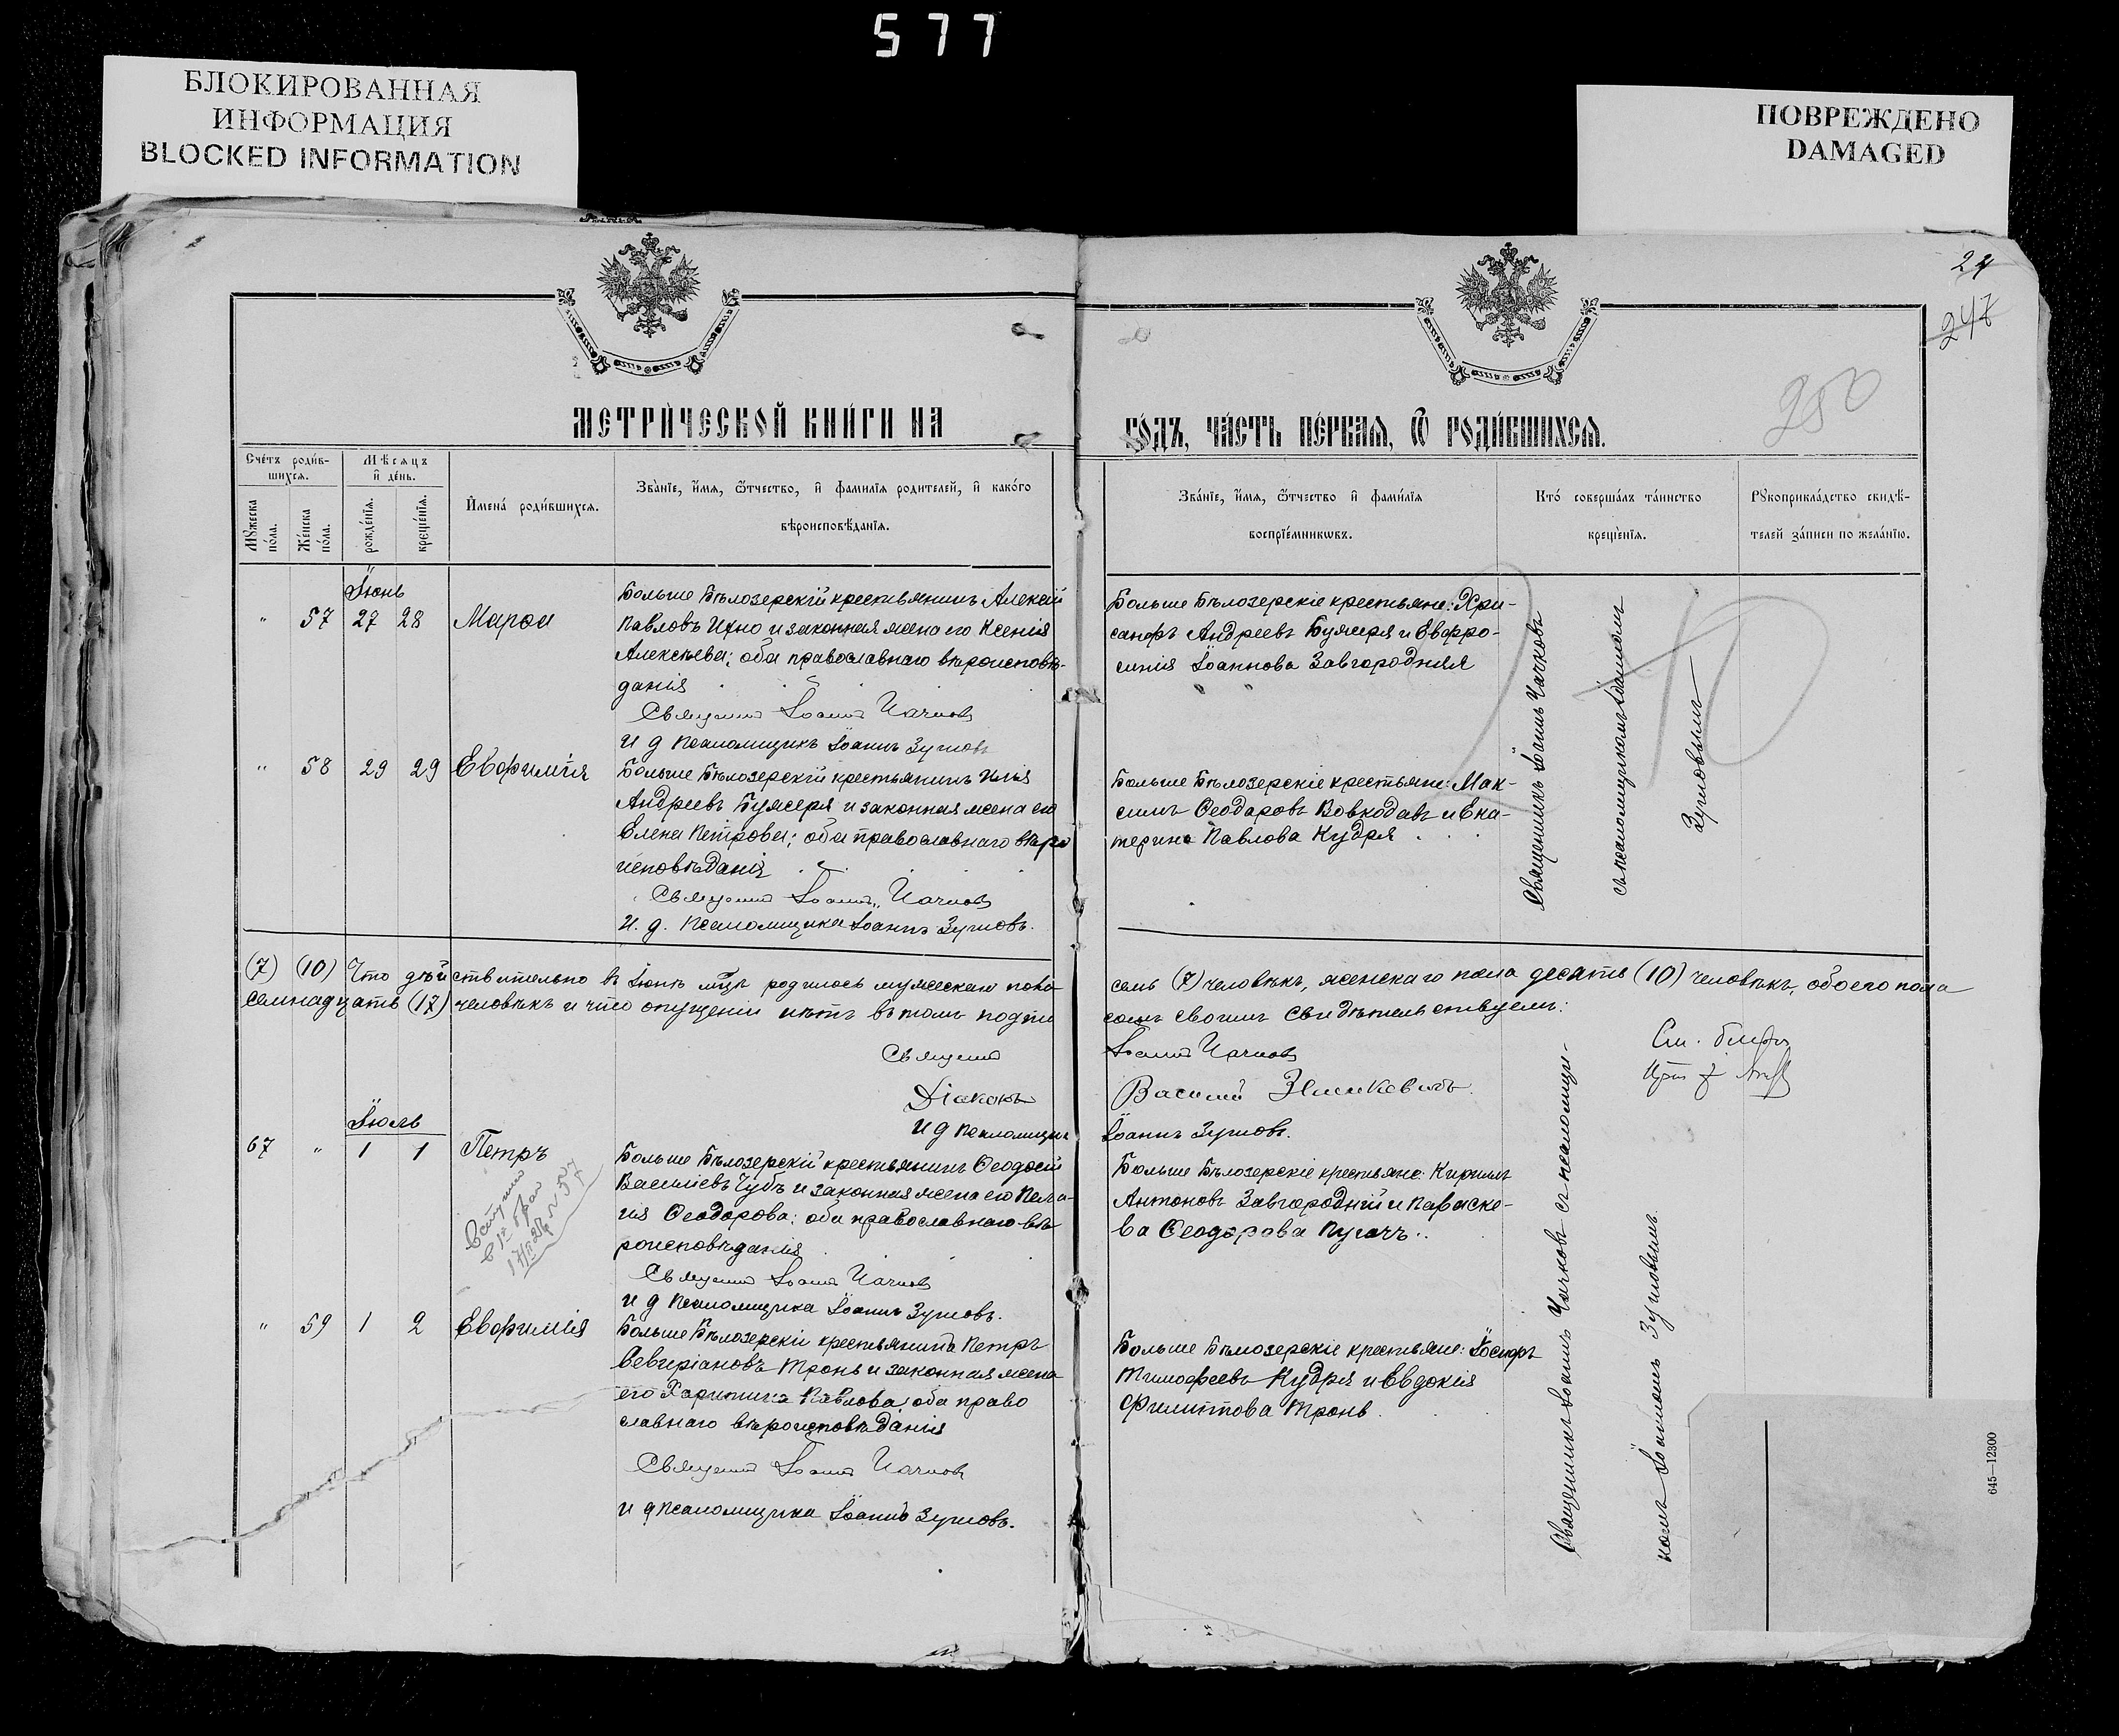 577
БЛОКИРОВАННАЯ
ИНФОРМАЦИЯ
BLOCKED INFORMATION
ПОВРЕЖДЕНО
DAMAGED
24
247
250
МЕТРИ́ЧЕСКОЙ КНИ́ГИ НА
ГО́ДЪ, ЧА́СТЬ ПЕ́РВАЯ, Ѿ РОДИ́ВШИХСЯ.
Сче́тъ роди́в-
шихся.
Мѣ́сяцъ
и҆ де́нь.
Мꙋ́жеска
по́ла.
Же́нска
по́ла.
рожде́нїя.
креще́нїя.
И҆мена̀ роди́вшихся.
Зва́нїе, и҆́мя, ѻ҆́тчество, и҆ фамилїя родителей, и҆ како́гѡ
вѣроисповѣ́данїя.
Зва́нїе, и҆́мя, ѻ҆́тчество и҆ фами́лїя
воспрїе́мникѡвъ.
Кто̀ соверша́лъ та́инство
креще́нїя.
Рꙋкоприкла́дство свидѣ́-
телей за́писи по жела́нїю.
Іюнь
" 57 27 28 Марѳа
Больше Бѣлозерскій крестьянинъ Алексій
Павловъ Ихно и законная жена его Ксенія
Алексѣева; оба православнаго вѣроисповѣ-
данія
Священникъ Іоаннъ Чачковъ
И д псаломщика Іоаннъ Зушовъ
Больше Бѣлозерскіе крестьяне: Хри-
санфъ Андреевъ Бужеря и Евфро-
синія Іоаннова Завгородняя
Священникъ Іоаннъ Чачковъ
съ псаломщикомъ Іоанномъ
Зушовымъ
" 58 29 29 Евфимія
Больше Бѣлозерскій крестьянинъ Илія
Андреевъ Бужеря и законная жена его
Елена Петрова; оба православнаго вѣро
исповѣданія
Священникъ Іоаннъ Чачковъ
И. д. псаломщика Іоаннъ Зушовъ.
Больше Бѣлозерскіе крестьяне: Мак-
симъ Ѳеодоровъ Вовкодавъ и Ека-
терина Павлова Кудря
(7) (10) Что дѣйствительно въ Іюнѣ мцѣ родилось мужескаго пола
семь (7) человѣкъ, женскаго пола десять (10) человѣкъ, обоего пола
семнадцать (17) человѣкъ и что опущеній нѣтъ въ томъ подпи
сомъ своимъ свидѣтельствуемъ:
Священникъ Іоаннъ Чачковъ
Діаконъ Василій
И д псаломщика Іоаннъ Зушовъ.
Іюль
67 " 1 1 Петръ
Вступил
в 1й брак
Больше Бѣлозерскій крестьянинъ Ѳеодосій
Васильевъ Чубъ и законная жена его Пела-
гія Ѳеодорова; оба православнаго вѣ-
роисповѣданія
Священникъ Іоаннъ Чачковъ
И д псаломщика Іоаннъ Зушовъ.
Больше Бѣлозерскіе крестьяне: Кириллъ
Антоновъ Завгородній и Параске-
ва Ѳеодорова Пугачъ.
Священникъ Іоаннъ Чачковъ съ псаломщи-
комъ Іоанномъ Зушовымъ.
" 59 1 2 Евфимія
Больше Бѣлозерскій крестьянинъ Петръ
Севиріановъ Тронь и законная жена
его Харитина Павлова; оба право
славнаго вѣроисповѣданія
Священникъ Іоаннъ Чачковъ
И д псаломщика Іоаннъ Зушовъ.
Больше Бѣлозерскіе крестьяне: Іосифъ
Тимофеевъ Кудря и Евдокія
Филиппова Тронь.
645—12300